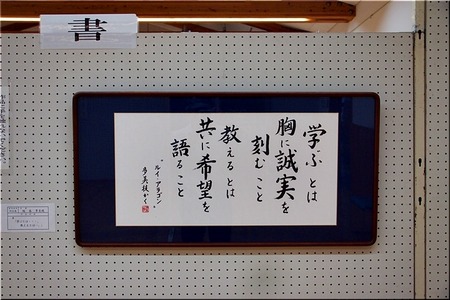 書
学ぶとは
胸に誠実を
刻むこと
教えるとは
共に希望を
語ること
ルイ アラゴン